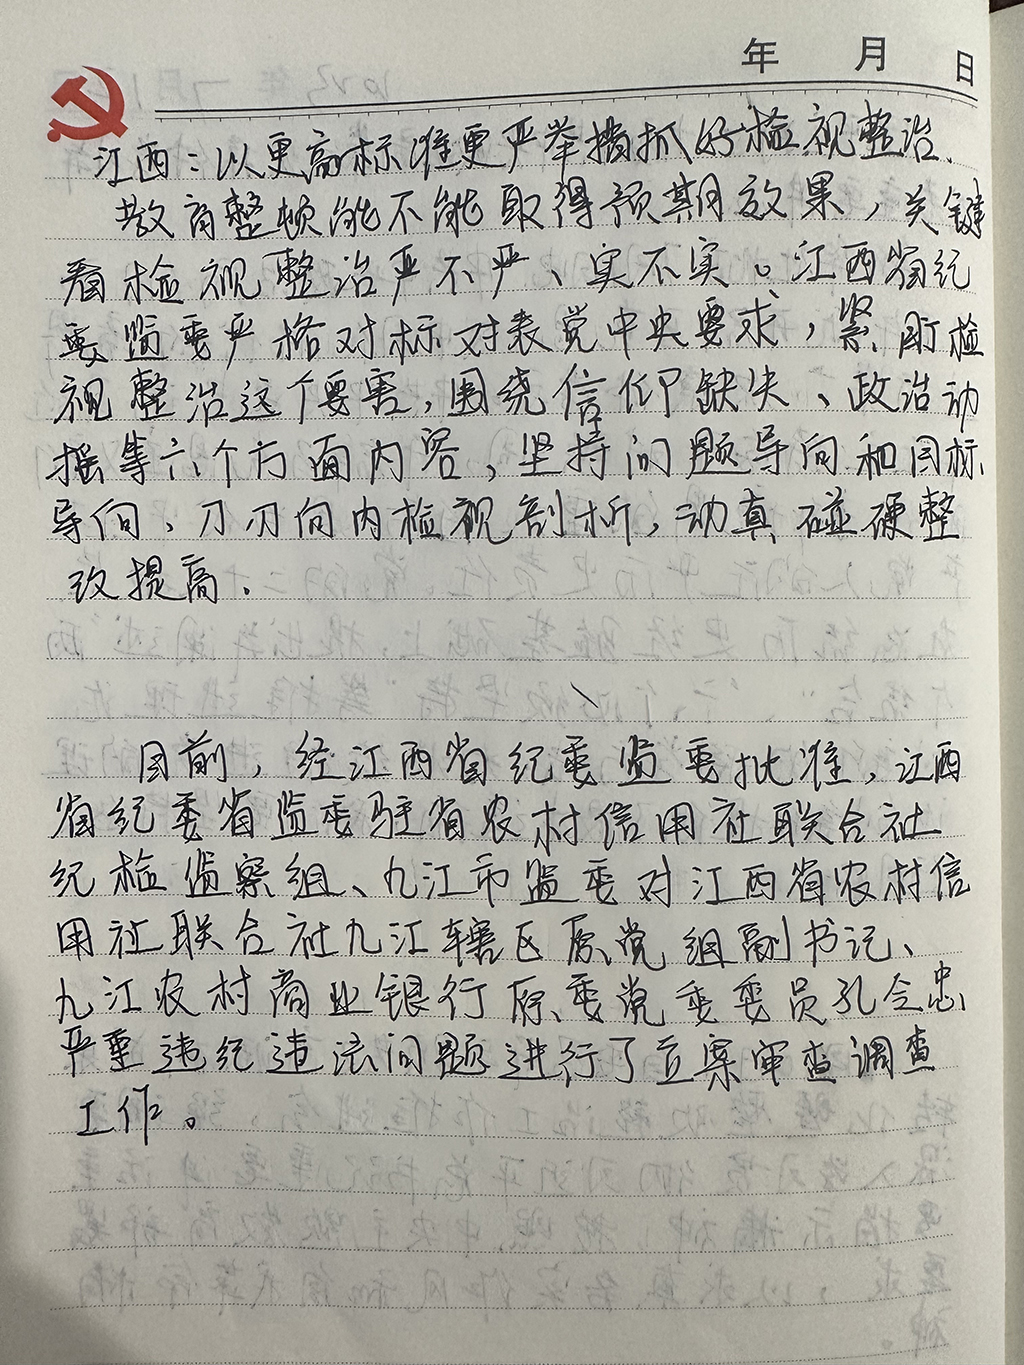 年 月 日
江西：以更高标准更严举措抓好检视整治、
教育整顿能不能取得预期效果，关键
看检视整治严不严、实不实。江西省纪
委监委严格对标对表党中央要求，紧盯检
视整治这个要害，围绕信仰缺失、政治动
摇等六个方面内容，坚持问题导向和目标
导向、刀刃向内检视剖析，动真碰硬整
改提高.
目前，经江西省纪委监委批准，江西
省纪委省监委驻省农村信用社联合社
纪检监察组、九江市监委对江西省农村信
用社联合社九江辖区原党组副书记、
九江农村商业银行原委党委委员孔令忠
严重违纪违法问题进行了立案审查调查
工作。